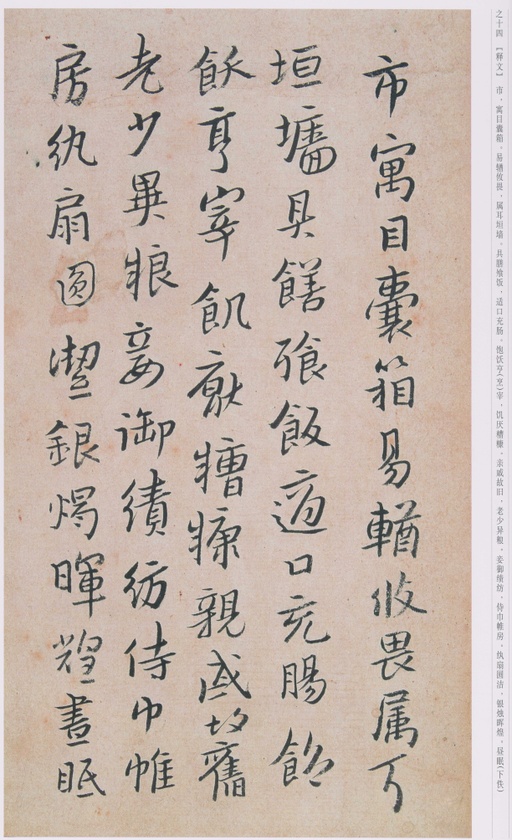 之十四 【释文】 市，寓目囊箱。易輶攸畏，属耳垣墙。具膳飧饭，适口充肠。饱饫亨（烹）宰，饥厌糟糠。亲戚故旧，老少异粮。妾御绩纺，侍巾帷房。纨扇圆洁，银烛晖煌。昼眠（下佚）
市寓目囊箱易輶攸畏属耳
垣墻具饍飱飯適口充腸飽
飫亨宰飢猒糟糠親戚故舊
老少異粮妾御績紡侍巾帷
房紈扇圓潔銀燭暉煌晝眠